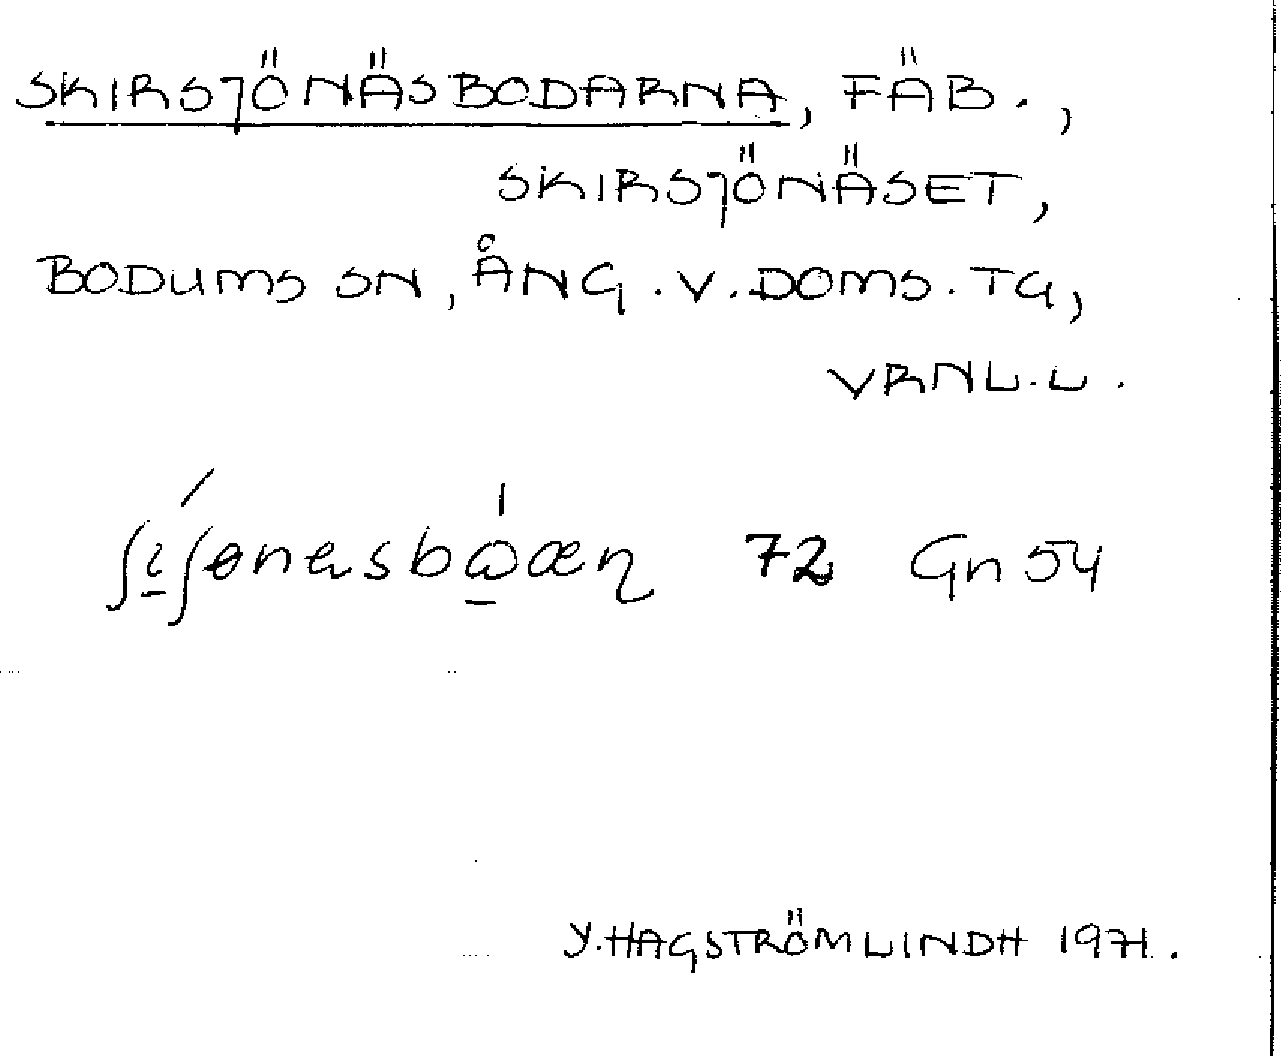 SKIRSJÖNÄSBODARNA, FÄB.,
SKIRSJÖNÄSET,
BODUMS SN, ÅNG. V. DOMS. TG,
VRNL. L.
72 Gn 54
Y. HAGSTRÖM LINDH 1971.